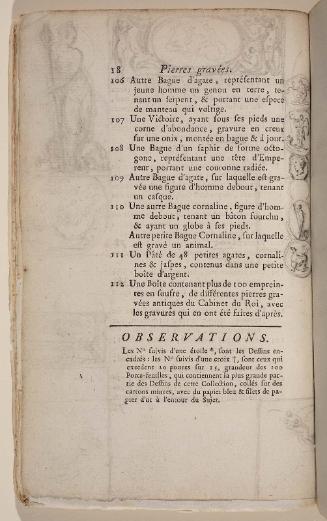 18 Pierres gravées.
106 Autre Bague d'agate, représentant un
jeune homme un genou en terre, te-
nant un serpent, & portant une espece
de manteau qui voltige.
107 Une Victoire, ayant sous ses pieds une
corne d'abondance, gravure en creux
sur une onix, montée en bague & à jour.
108 Une Bague d'un saphir de forme octo-
gone, représentant une tête d'Empe-
reur, portant une couronne radiée.
109 Autre Bague d'agate, sur laquelle est gra-
vée une figure d'homme debout, tenant
un casque.
110 Une autre Bague cornaline, figure d'hom-
me debout, tenant un bâton fourchu,
& ayant un globe à ses pieds.
Autre petite Bague Cornaline, sur laquelle
est gravé un animal.
111 Un Pâté de 48 petites agates, cornali-
nes & jaspes, contenus dans une petite
boîte d'argent.
112 Une Boîte contenant plus de 100 emprein-
tes en soufre, de différentes pierres gra-
vées antiques du Cabinet du Roi, avec
les gravures qui en ont été faites d'après.
OBSERVATIONS.
Les Nos suivis d'une étoile *, sont les Dessins en-
cadrés : les Nos suivis d'une croix †, sont ceux qui
excedent 20 pouces sur 15, grandeur des 100
Porte-feuilles, qui contiennent la plus grande par-
tie des Dessins de cette Collection, collés sur des
cartons minces, avec du papier bleu & filets de pa-
pier d'or à l'entour du Sujet.